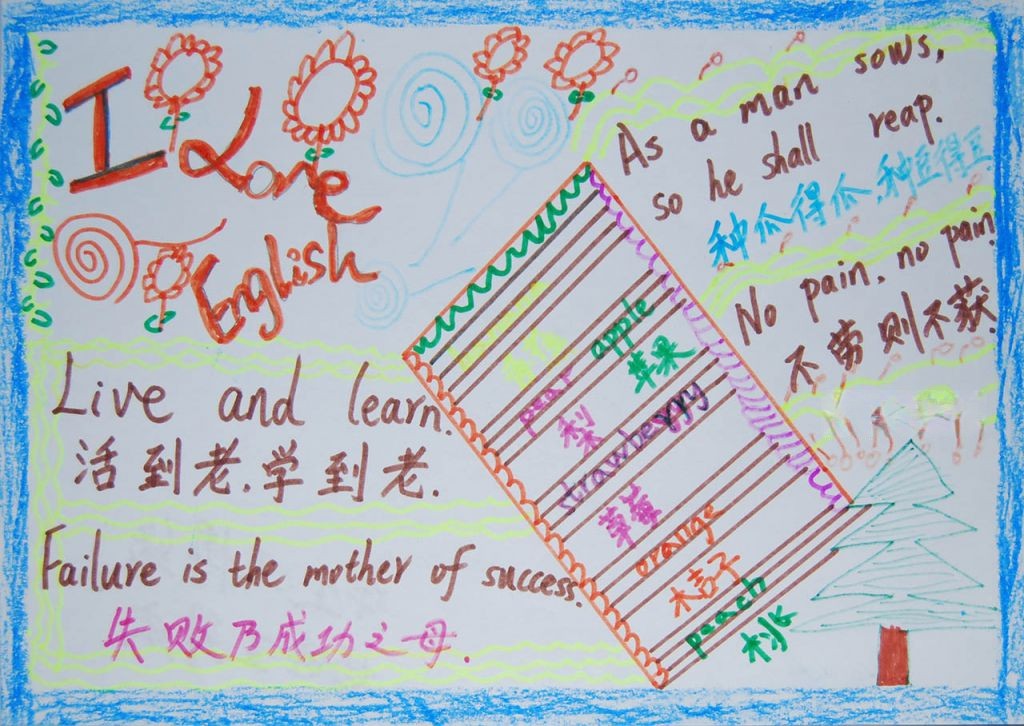 I Love
English
As a man sows,
so he shall reap.
种瓜得瓜.种豆得豆
No pain. no pain
不劳则不获.
Live and learn.
活到老.学到老.
Failure is the mother of success.
失败乃成功之母.
apple
苹果
pear
梨
strawberry
草莓
orange
桔子
peach
桃